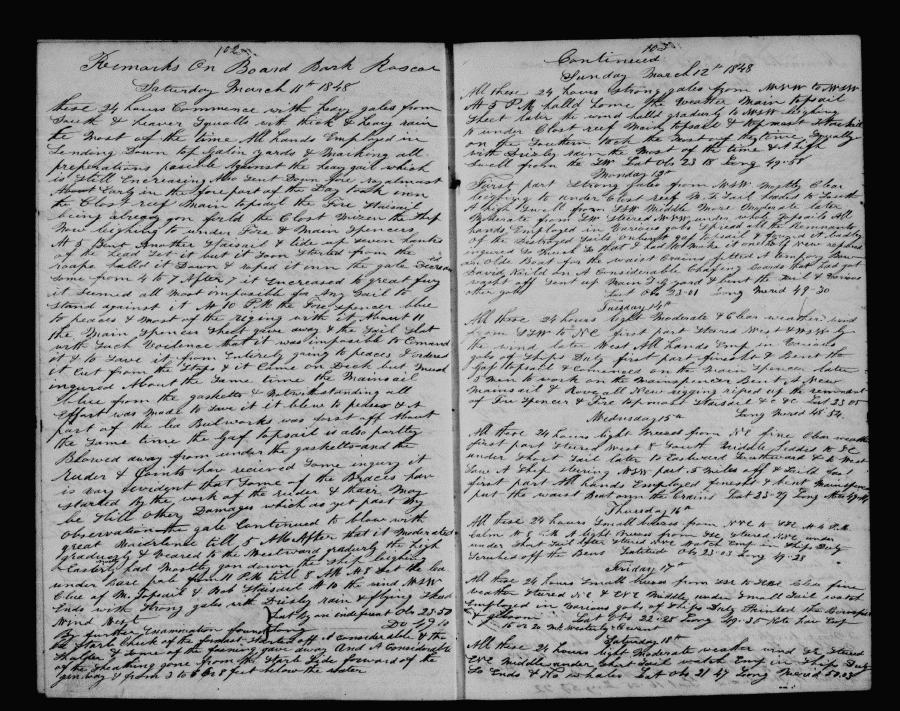 102
Remarks On Board Bark Roscoe
Saturday March 11th 1848
these 24 hours Commence with heavy gales from
South & heaver Squalls with thick & heavy rain
the Most of the time All hands Employed in
Sending Down top Galln yards & Making all
preperations possible Against the heavy gail which
is Still Encreasing Also Sent Down fore
Early in the fore part of the Day took in
the Close reef Main topsail the Fore Staisail
being already gon furld the Close Mizen the Ship
Now leighing to under Fore & Main Spencers
At 5 Bent Another Staisail &
of the Lead Set it but it Soon Started from the
roape halld it Down & roped it in the gale
some from 4 to 7 After it increased to great fury
it Seemed all most imposible for Any Sail to
Stand against it At 10 PM the Fore Spencer blue
to peaces & Most of the riging with it About 11
the Main Spencer Sheet give away & the Sail Slat
with Such Voilence that it was imposible to Comand
it & to Save it from Entirely going to peaces I ordered
it Cut from the Hoops & it Came on Deck but Much
ingured About the Same time the Mainsail
blue from the gaskets & Notwithstanding all
Effort was Made to Save it it blew to peaces & A
part of the lea Bulworks was tore off About
the Same time the Gaf topsail is also partley
Blowed away from under the gaskets and the
Ruder & Joints hav recieved Some ingury it
is vary Evident that Some of the Braces hav
started by the work of the ruder & thair May
be Still Other Damages which as yet past My
Observation the gale Continued to blow with
great Voilence till 5 AM After that it Moderates
gradurly & Veared to the Westward gradurly the high
Easterly had Mostly gon down the Ship
under bare pole from 11 PM till 8 AM At 8 Set the lea
Clue of M Topsail & Staisail At M the wind WSW
Ends with Strong gales with Drisly rain & flying Clouds
Wind West Lat by an indifrent Obs 23-50
Do 49 10
By further Examination found
the Starb Cheek of the Started off it Considerable & the
Some of the fasning gave away And A Considerable
of the Sheathing gone from the Starb Side forward of the
gan way & from 3 to 6 & 8 feet below the water
103
Continued
Sunday March 12th 1848
All these 24 hours Strong gales from WNW to WSW
At 5 PM halld home the Weather Main topsail
Sheet later the wind halld gradurly to WSW
to under Close reef Main topsail &
on the Southern tack the Most of the time Squally
with Drizly rain the Most of the time & A high
Swell from the SW Lat Obs 23 18 Long 49-58
Monday 13th
First part Strong gales from WSW Mostly Clear
leighing to under Close reef M T Sail headed to South
A heavy Swell from SSW Middle More Moderate later
Moderate from SW Stered NNW under whole topsails All
hands Employed in Various jobs Spread all the Remnants
of the Distroyed Sails Unbent gaf topsail & found it badly
ingured to Mend to float & had to Make it one
an Olde Boat for the waist Crains fitted A Temprory
David Naild on A Considerable Chafing Coards that had got
sight off Sent up Main T G yard & bent the Sail & Various
other jobs Lat Obs 23-01 Long Merid 49-30
Tuesday 14th
All these 24 hours light Moderate & Clear weather wind
from SSW to NE first part Stered West & WSW by
the wind later West All hands Emp in Various
jobs of Ships Duty first part finesht & Bent the
Gaf topsail & Comenced on the Main Spencer later
3 Men to work on the Mainspencer Bent A New
Mainsail & New rigging riped up the remnant
of Fore Spencer & Fore topmast Staisail &c &c Lat 23 05
Long Merid 48 54
Wednesday 15th
All these 24 hours light breezes from NE fine Clear weather
first part Stered West & South Middle headed to SE
under Short Sail later to Eastward Southward &c & West
Saw A Ship stering NW part 5 Miles off & Sail
first part All hands Employed finesht & bent Mainspencer
put the waist Boat on the Crains Lat 23-29 Long Mer 49 14
Thursday 16th
All these 24 hours Small breeses from NNE to ESE At 4 PM
Calm At 6 PM A light breeze from ESE Stered NNE under
under Short Sail After Stered NNE Watch Emp in Ships Duty
Scrubed off the Bens Latitude Obs 23-03 Long 49-28
Friday 17th
All these 24 hours Small breses from ESE to NNE Clear fine
weather Stered NE & ENE Middle under Small Sail watch
Employed in Various jobs of Ships Duty Painted the
& Jibboom Lat Obs 22-25 Long 49-30
15 or 20 M Westerly
Saturday 18th
All these 24 hours light Moderate weather wind SE Stered
ENE Middle under Short Sail watch Emp in Ships Duty
So Ends & No whales Lat Obs 21 47 Long Merid 50.03